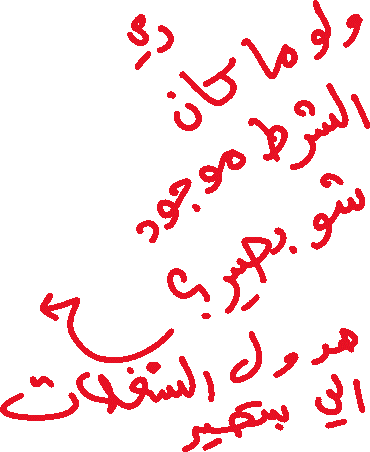 ولو ما كان دي
الشرط موجود
شو بصير؟
هدول الشغلات
الي بتصير